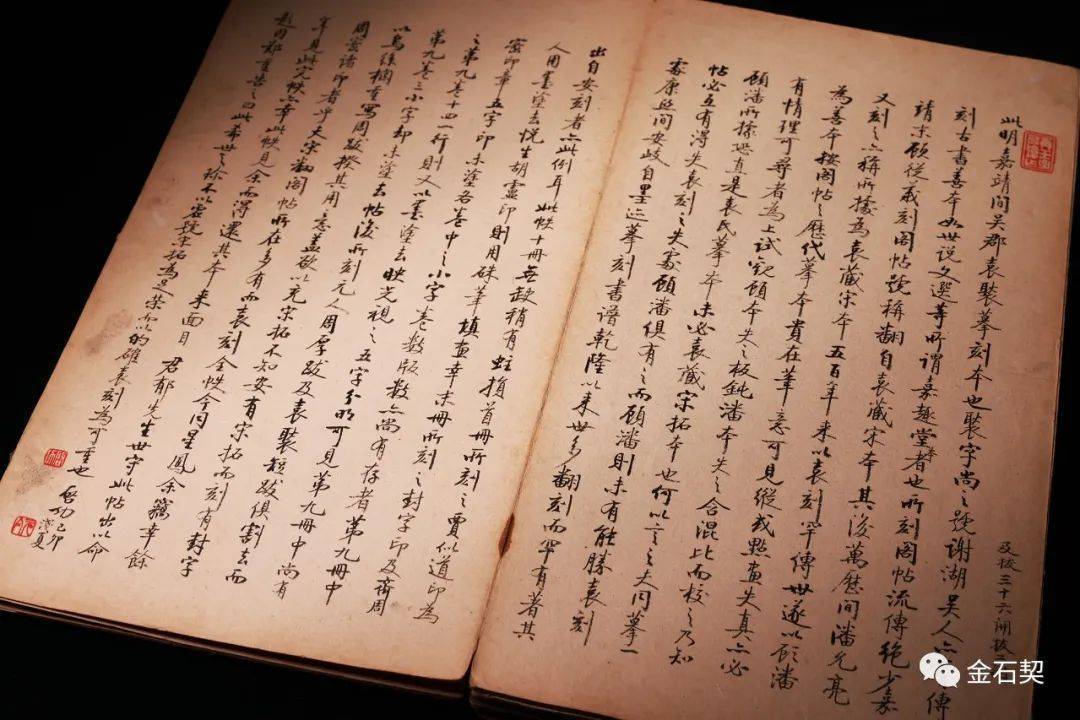 此明嘉靖間吳郡袁褧摹刻本也褧字尚之號謝湖吳人傳
刻古書善本如世說文選等所謂嘉趣堂本者也所刻閣帖流傳絕少嘉
靖末顧從義刻閣帖號稱翻自袁藏宋本其後萬歷間潘允亮
又刻之亦稱所據為袁藏宋本五百年來以袁刻罕傳世遂以顧潘
為善本按閣帖之歷代摹本貴在筆意可見縱或點畫失真亦必
有情理可尋者為上試觀顧本失之板鈍潘本失之含混比而校之乃知
顧潘所據恐直是袁氏摹本未必袁藏宋拓本也何以言之夫同摹一
帖必互有得失袁刻之失處顧潘俱有之而顧潘則未有能勝袁刻
處康熙間安岐自墨迹摹刻書譜乾隆以來世多翻刻而罕有著其
及拔三十六開拔
出自安刻者亦此例耳此帙十冊無缺稍有蛀損首冊所刻之賈似道印為
人用墨塗去悅生胡盧印則用硃筆填畫幸末冊所刻之封字印及齊周
密印章五字印未塗各卷中之小字卷數版數亦尚有存者第九冊中
之第九卷十四一行則又以墨塗去映光視之五字分明可見第九冊中尚有
第九卷三小字卻未塗去帖後所刻元人周厚跋及袁褧短跋俱割去而
以烏絲欄重寫周跋揆其用意蓋欲以充宋拓不知安有宋拓而刻有封字
周密諸印者乎夫宋翻閣帖所在多有而袁刻全帙今同星鳳余竊幸餘
年見此完帙亦幸此帙見余而得還其本來面目 君郁先生世守此帖出以命
題因鄭重告之曰此希世之珍不以虛號宋拓為足榮而以的確袁刻為可重也
啟功 己卯盛夏
金石契